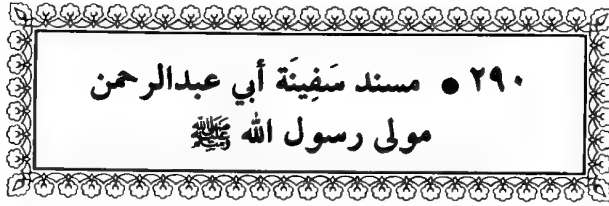 ٢٩٠ ● مسند سَفِينَة أبي عبدالرحمن
مولى رسول الله ﷺ